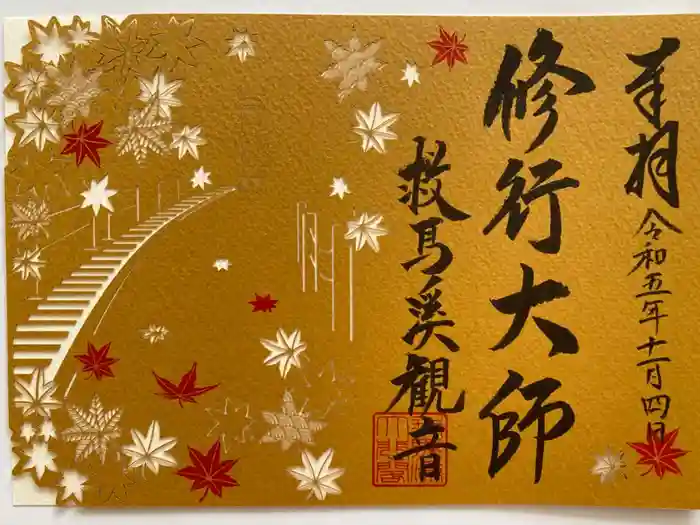 奉拝 令和五年十一月四日
修行大師
救馬溪観音